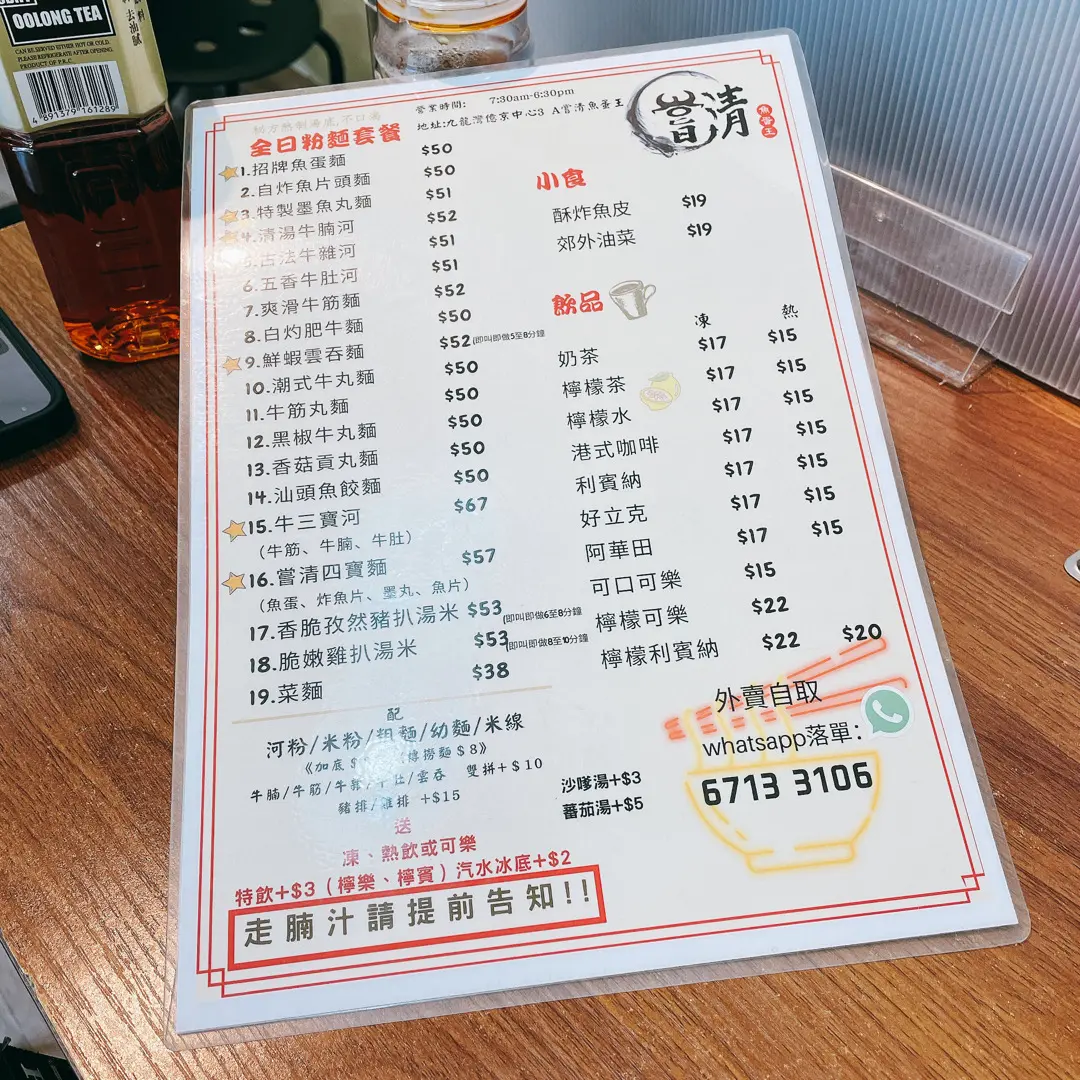 OOLONG TEA
CAN BE SERVED EITHER HOT OR COLD.
PLEASE REFRIGERATE AFTER OPENING.
PRODUCT OF P.R.C.
4 891379 161289
營業時間: 7:30am-6:30pm
地址:九龍灣億京中心3 A嘗清魚蛋王
嘗清
魚蛋王
全日粉麵套餐
1.招牌魚蛋麵 $50
2.自炸魚片頭麵 $50
3.特製墨魚丸麵 $51
4.清湯牛腩河 $52
5.古法牛雜河 $51
6.五香牛肚河 $51
7.爽滑牛筋麵 $52
8.白灼肥牛麵 $50
9.鮮蝦雲吞麵 $52 (即叫即做5至8分鐘
10.潮式牛丸麵 $50
11.牛筋丸麵 $50
12.黑椒牛丸麵 $50
13.香菇貢丸麵 $50
14.汕頭魚餃麵 $50
15.牛三寶河 $67
(牛筋、牛腩、牛肚)
16.嘗清四寶麵 $57
(魚蛋、炸魚片、墨丸、魚片)
17.香脆孜然豬扒湯米 $53 (即叫即做6至8分鐘
18.脆嫩雞扒湯米 $53 (即叫即做8至10分鐘
19.菜麵 $38
配
河粉/米粉/粗麵/幼麵/米線
《加底$ 撈麵$8》
牛腩/牛筋/牛雜/牛肚/雲吞 雙拼+$10
豬排/雞排 +$15
送
凍、熱飲或可樂
特飲+$3(檸樂、檸賓)汽水冰底+$2
走腩汁請提前告知!!
小食
酥炸魚皮 $19
郊外油菜 $19
飲品
凍 熱
奶茶 $17 $15
檸檬茶 $17 $15
檸檬水 $17 $15
港式咖啡 $17 $15
利賓納 $17 $15
好立克 $17 $15
阿華田 $17 $15
可口可樂 $15
檸檬可樂 $22
檸檬利賓納 $22 $20
外賣自取
whatsapp落單:
6713 3106
沙嗲湯+$3
蕃茄湯+$5